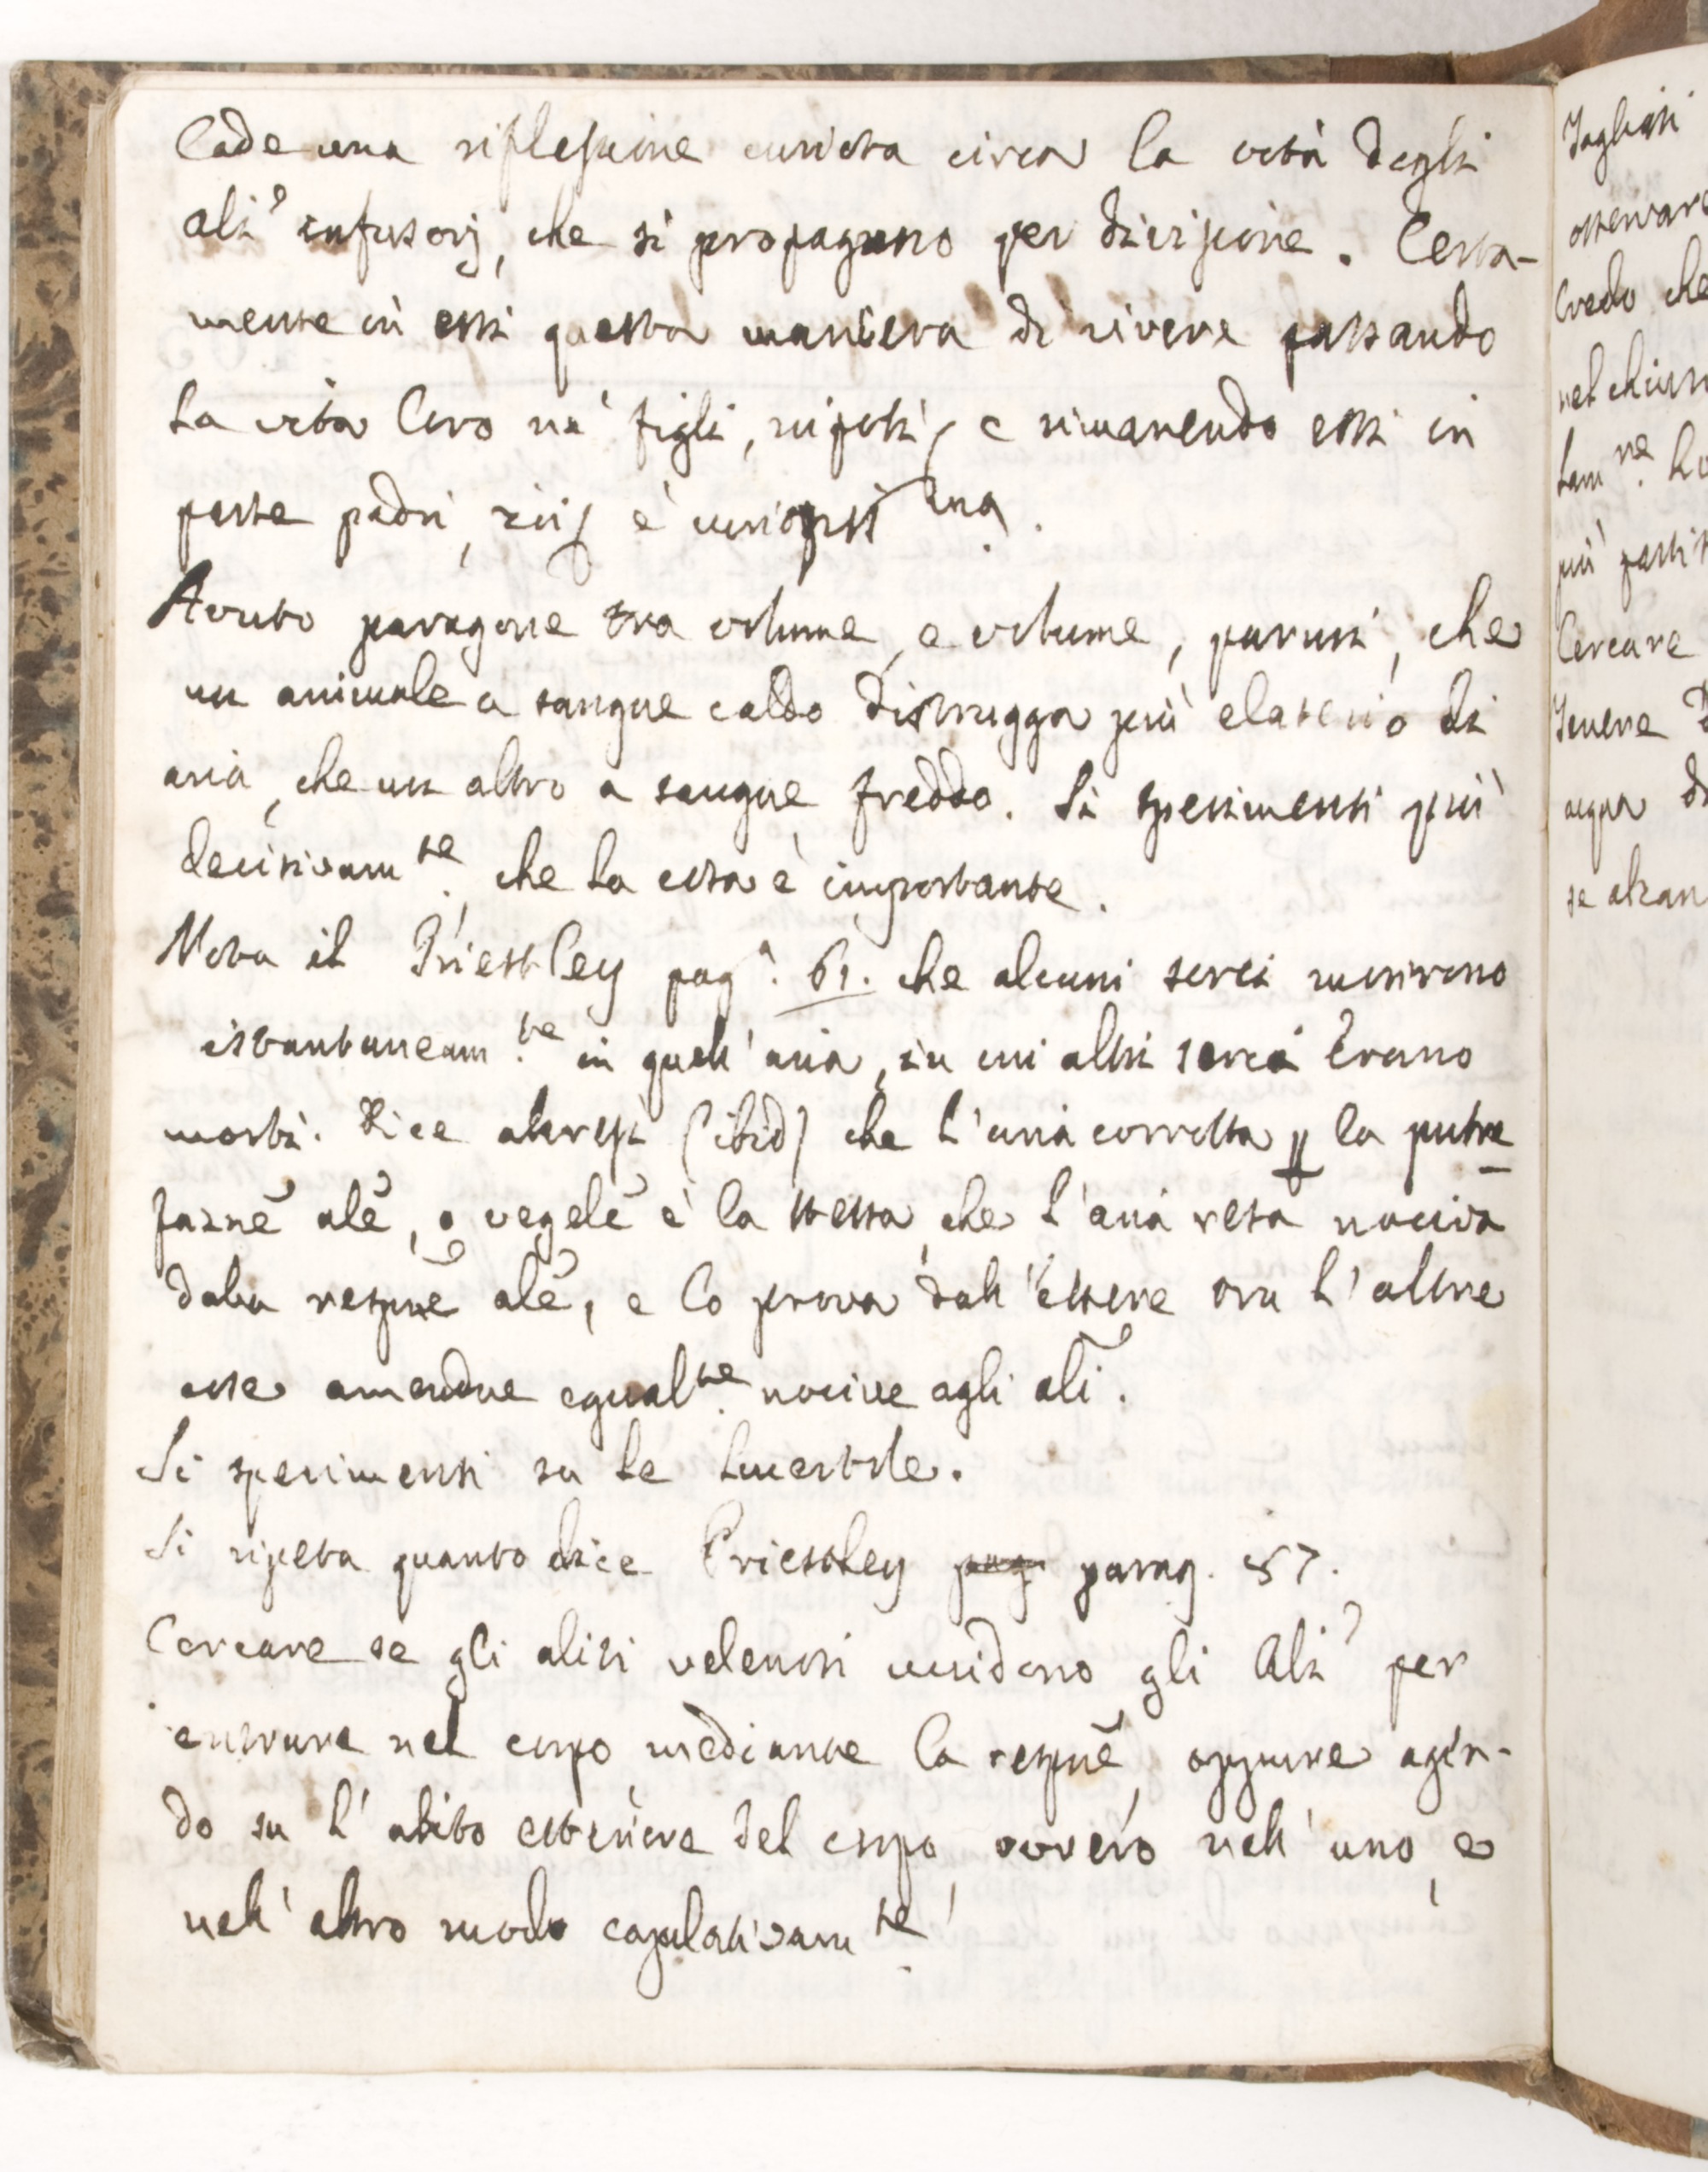 Cade una riflessione curiosa circa la vita degli
ali infusorj, che si propagano per divisione. Certa-
mente in essi questa maniera di vivere passando
la vita loro ne' figli, nipoti, e rimanendo essi in
parte padri, zii è curiosissima.
Avuto paragone tra volume, e volume, parmi, che
un animale a sangue caldo distrugga più elaterio di
aria, che un altro a sangue freddo. Si sperimenti più
decisivam.te, che la cosa è importante.
Nota il Priestley pag.a 61. che alcuni sorci morirono
istantaneam.te in quell'aria, in cui altri sorci erano
morti. Dice altresì (ibid) che l'aria corrotta p la putre
fazne ale, o vegele è la stessa, che l'aria resa nociva
dalla respne ale, e lo prova dall'essere ora l'altre
esse amendue egual.te nocive agli ali.
Si sperimenti su le lucertole.
Si ripeta quanto dice Priestley pag. parag. 57.
Cercare se gli aliti velenosi uccidono gli Ali per
entrare nel corpo mediante la respne, oppure agen-
do su l'abito esteriore del corpo, ovvero nell'uno, e
nell'altro modo copulativam.te
Tagliati
osservare
Credo che
nel chiuso
tam.te
più
Cercare
Tenere
acqua
se alcan